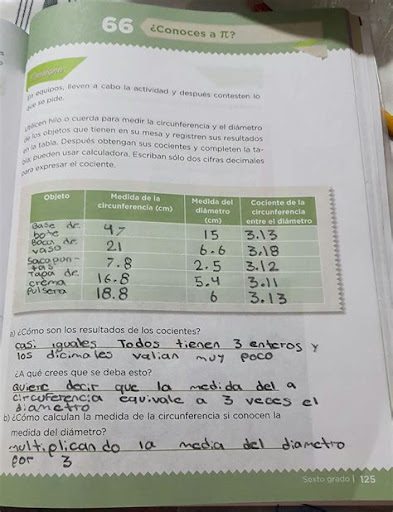 66 ¿Conoces a π?
Consigna
En equipos, lleven a cabo la actividad y después contesten lo
que se pide.
Utilicen hilo o cuerda para medir la circunferencia y el diámetro
de los objetos que tienen en su mesa y registren sus resultados
en la tabla. Después obtengan sus cocientes y completen la ta-
bla; pueden usar calculadora. Escriban sólo dos cifras decimales
para expresar el cociente.
Objeto Medida de la circunferencia (cm) Medida del diámetro (cm) Cociente de la circunferencia entre el diámetro
Base de bote 47 15 3.13
Boca de vaso 21 6.6 3.18
Sacapuntas 7.8 2.5 3.12
Tapa de crema 16.8 5.4 3.11
Pulsera 18.8 6 3.13
a) ¿Cómo son los resultados de los cocientes?
casi iguales Todos tienen 3 enteros y
los dicimales varian muy poco
¿A qué crees que se deba esto?
Quiere decir que la medida del a
circuferencia equivale a 3 veces el
diametro
b) ¿Cómo calculan la medida de la circunferencia si conocen la
medida del diámetro?
multiplican do la media del diametro
por 3
Sexto grado | 125